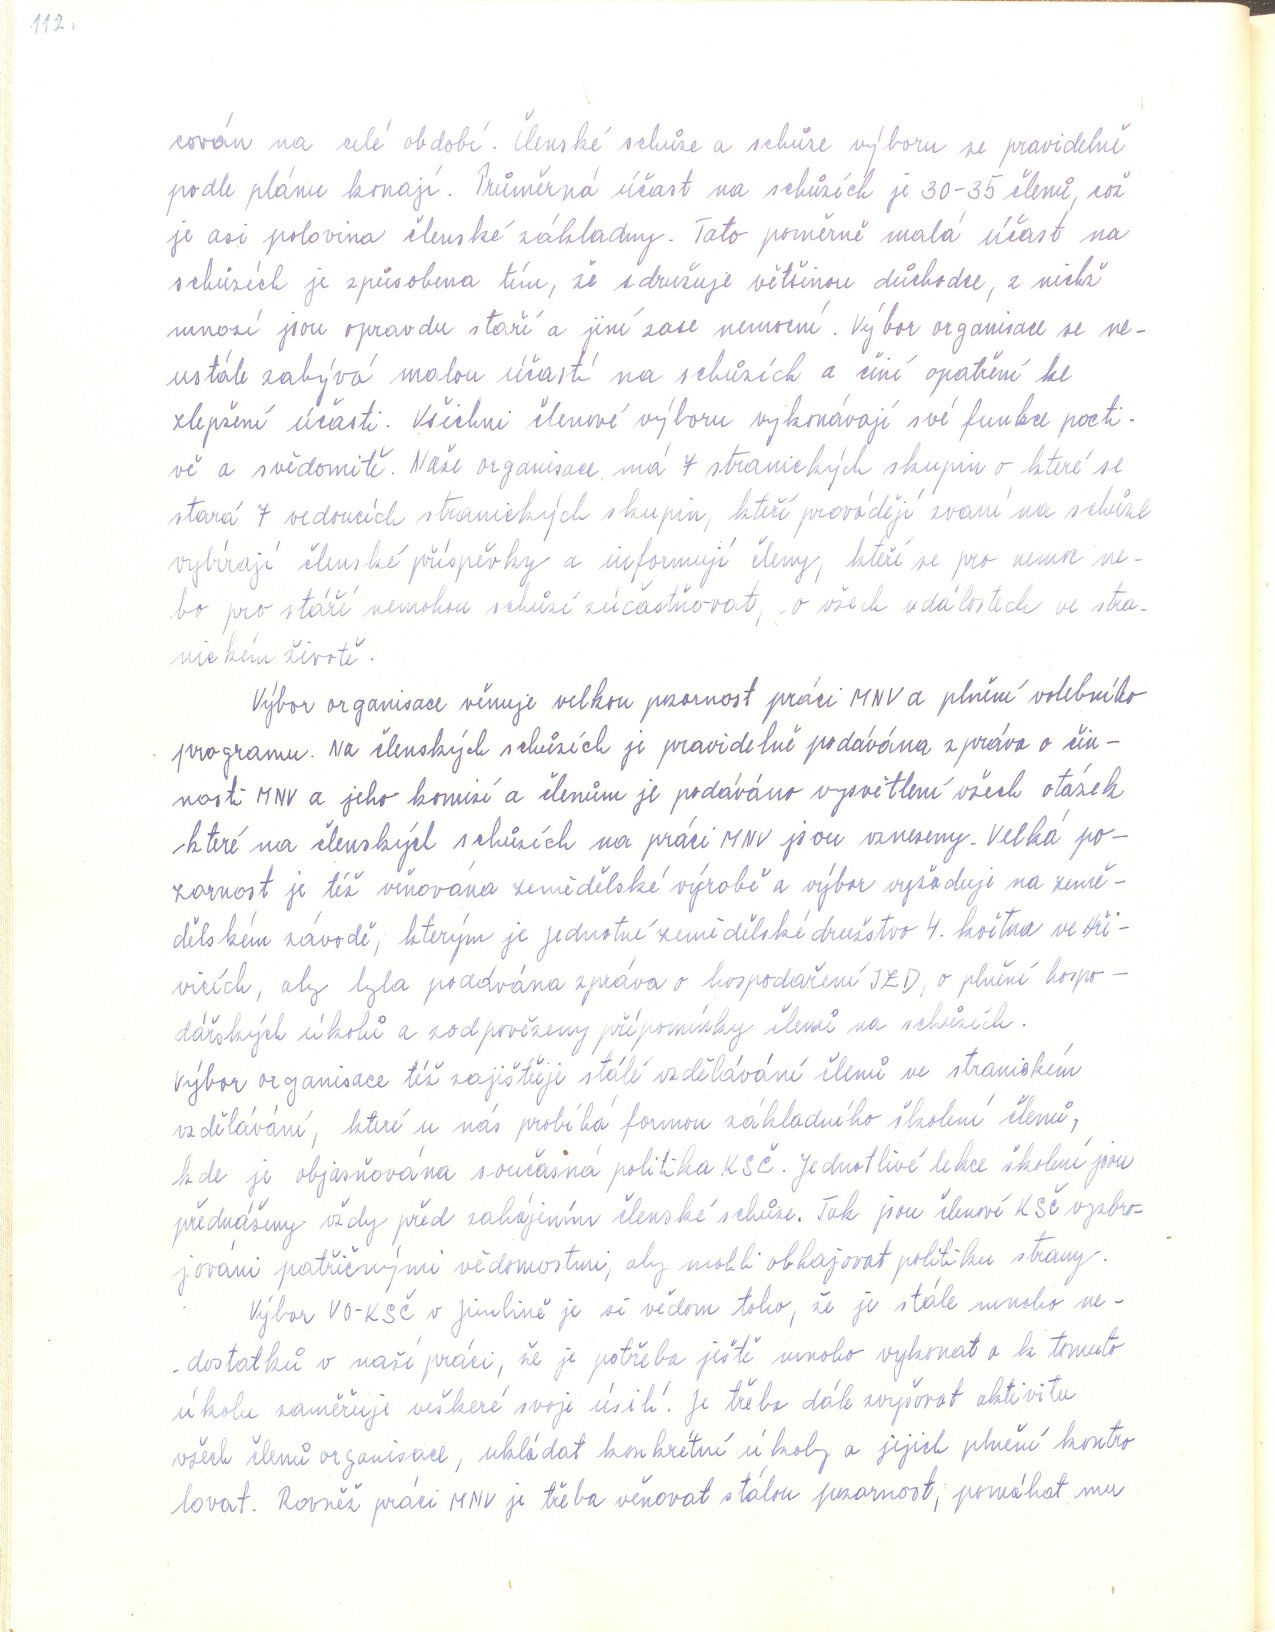 112.
cován na celé období. Členské schůze a schůze výboru se pravidelně
podle plánu konají. Průměrná účast na schůzích je 30-35 členů, což
je asi polovina členské základny. Tato poměrně malá účast na
schůzích je způsobena tím, že sdružuje většinou důchodce, z nichž
mnozí jsou opravdu staří a jiní zase nemocní. Výbor organisace se ne-
ustále zabývá malou účastí na schůzích a činí opatření ke
zlepšení účasti. Všichni členové výboru vykonávají své funkce pocti-
vě a svědomitě. Naše organisace má 7 stranických skupin o které se
stará 7 vedoucích stranických skupin, kteří provádějí zvaní na schůze
vybírají členské příspěvky a informují členy, kteří se pro nemoc ne-
bo pro stáří nemohou schůzí zúčastňovat, o všech událostech ve stra-
nickém životě.
Výbor organisace věnuje velkou pozornost práci MNV a plnění volebního
programu. Na členských schůzích je pravidelně podávána zpráva o čin-
nosti MNV a jeho komisí a členům je podáváno vysvětlení všech otázek
které na členských schůzích na práci MNV jsou vzneseny. Velká po-
zornost je též věňována zemědělské výrobě a výbor vyžaduje na země-
dělském závodě, kterým je Jednotné zemědělské družstvo 4. května ve Hři-
vicích, aby byla podávána zpráva o hospodaření JZD, o plnění hospo-
dářských úkolů a zodpovězeny připomínky členů na schůzích.
Výbor organisace též zajišťuje stálé vzdělávání členů ve stranickém
vzdělávání, které u nás probíhá formou základního školení členů,
kde je objasňována současná politika KSČ. Jednotlivé lekce školení jsou
přednášeny vždy před zahájením členské schůze. Tak jsou členové KSČ vyzbro-
jováni patřičnými vědomostmi, aby mohli obhajovat politiku strany.
Výbor VO-KSČ v Jimlíně je si vědom toho, že je stále mnoho ne-
dostatků v naší práci, že je potřeba ještě mnoho vykonat a k tomuto
úkolu zaměřuje veškeré svoje úsilí. Je třeba dále zvyšovat aktivitu
všech členů organisace, ukládat konkrétní úkoly a jejich plnění kontro
lovat. Rovněž práci MNV je třeba věňovat stálou pozornost, pomáhat mu